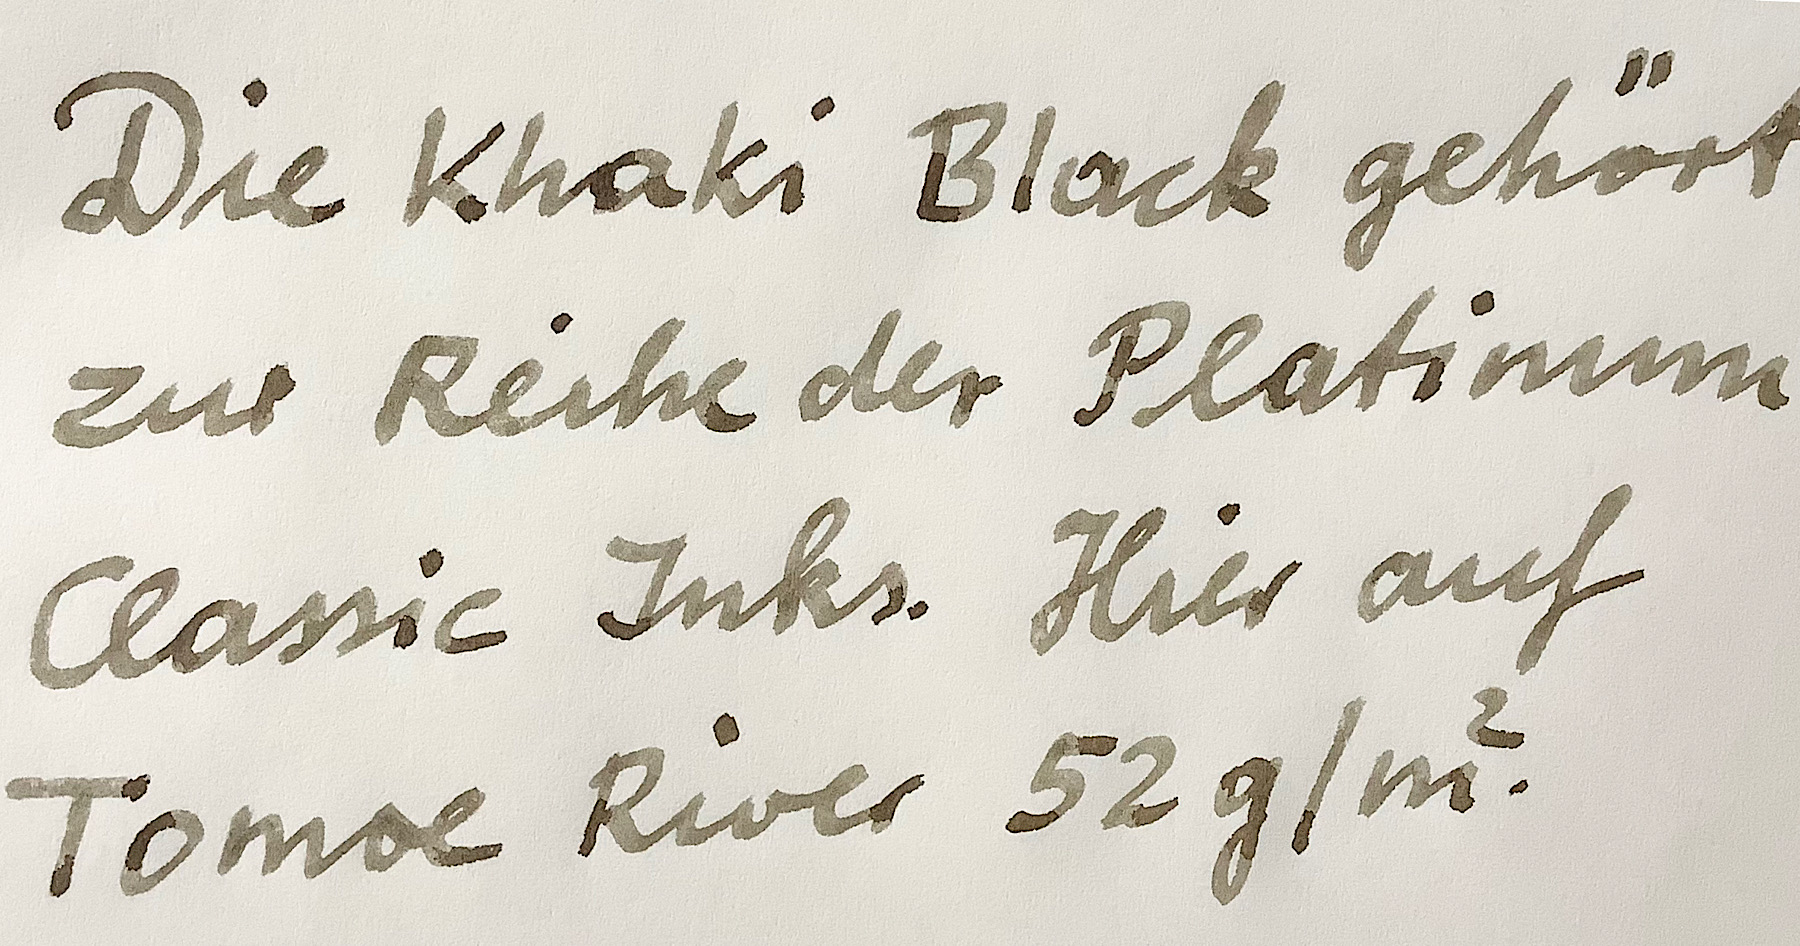 Die Khaki Black gehört
zur Reihe der Platinum
Classic Inks. Hier auf
Tomoe River 52 g/m².